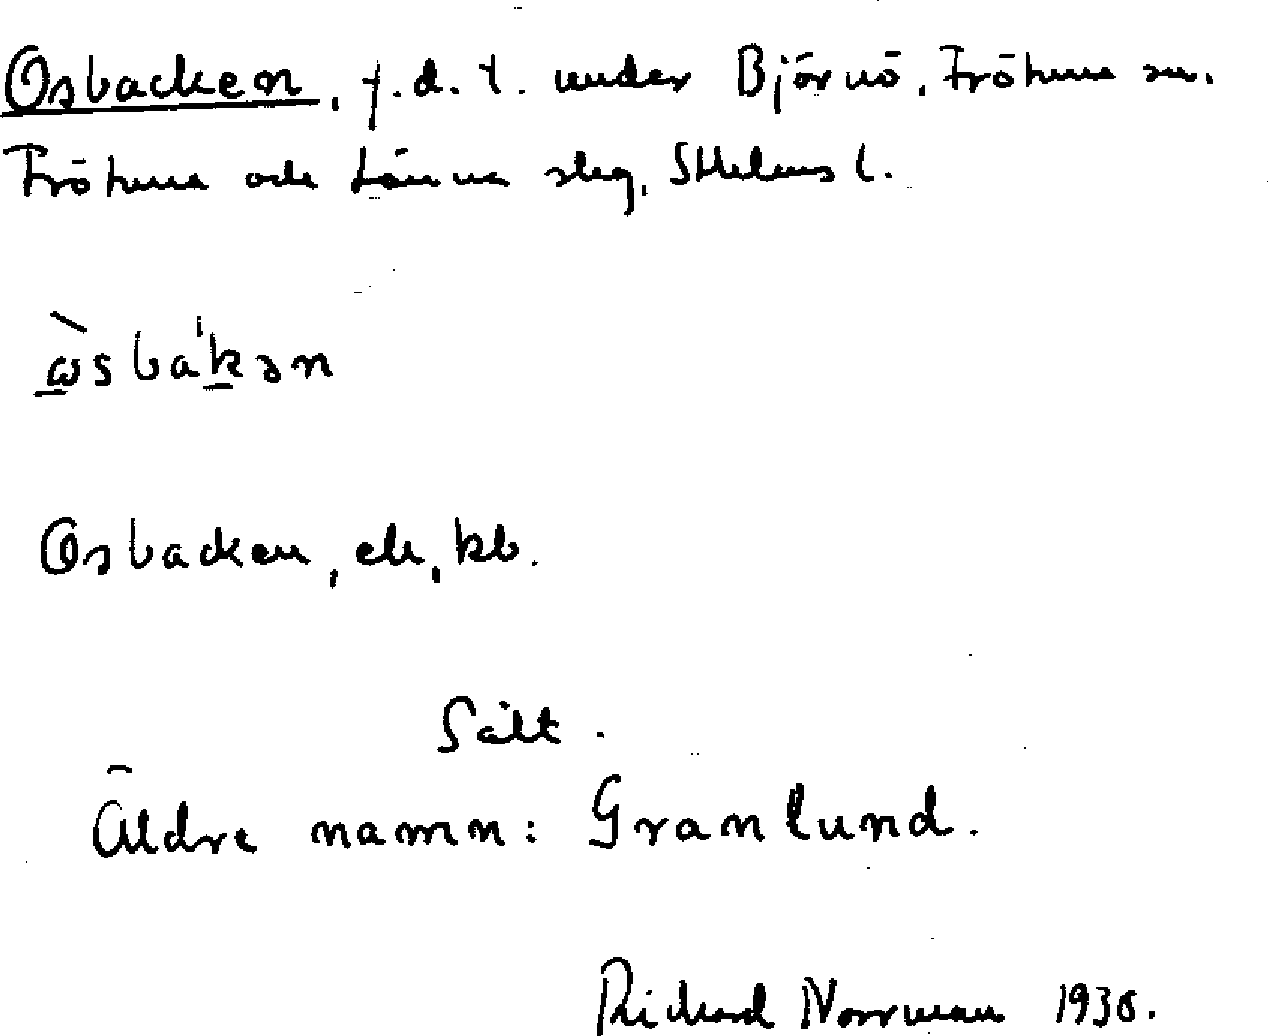 Osbacken, f.d. t. under Björnö, Frötuna sn.
Frötuna och Länna skg, Sthlms l.
ὼsbákən
Osbacken, ek, kb.
Sält.
Äldre namn: Granlund.
Richard Norrman 1936.